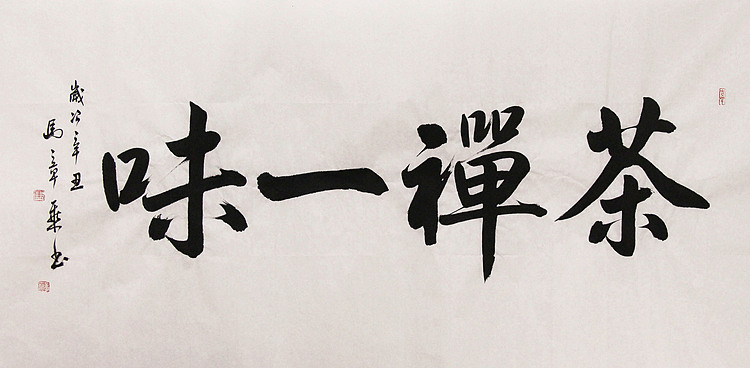 茶禪一味
歲次辛丑
馬章乘书